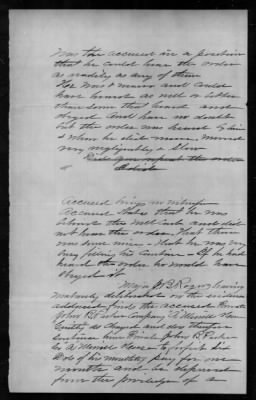 Was the accused in a position
that he could hear the order
as readily as any of them
He was & near and could
have heard as well or better
than some that heard and
obeyed. And have no doubt
but the order was heard by him
& when he did move, moved
very negligently & slow
Did you repeat the order
Accused brings no witness
Accused states that he was
about the and did
not hear the order. That there
was some noise - That he was very
busy filling his canteen - If he had
heard the order he would have
obeyed it
Major J B Rogers having
maturely deliberated on the evidence
adduced finds the accused Private
John R. Parker Company "A" Merrill Horse
Guilty as charged and does therefore
sentence him Private John R. Parker
Co A Merrill Horse to forfeit six
Dols of his monthly pay for one
month and be deprived
from the privilege of a